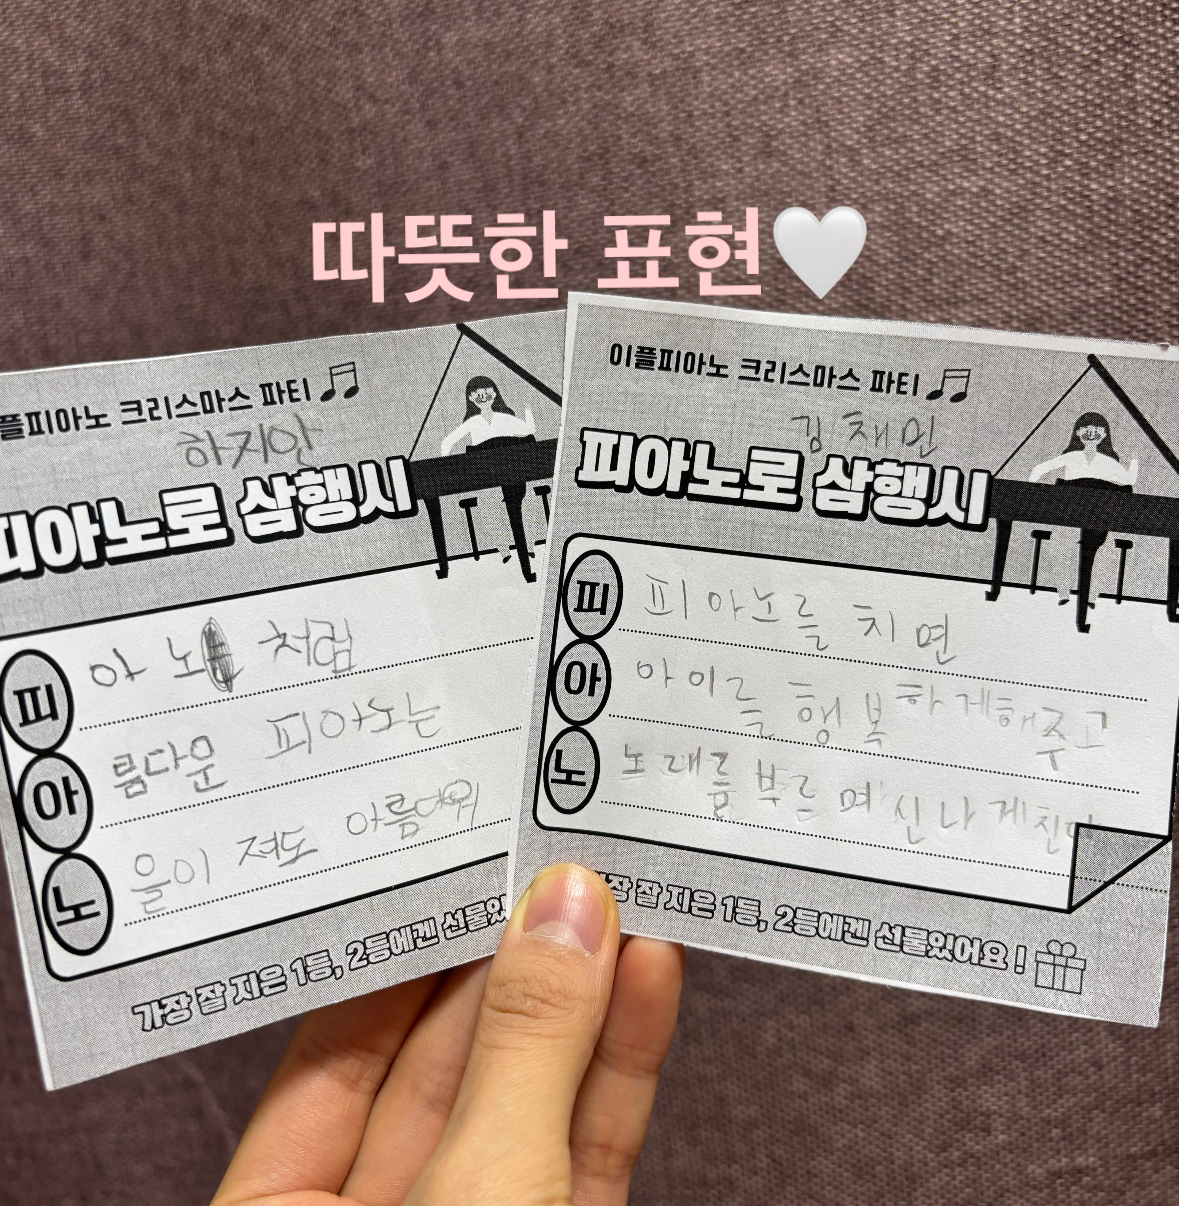 따뜻한 표현🤍
플피아노 크리스마스 파티
하지안
피아노로 삼행시
피 아노 처럼
아 름다운 피아노는
노 을이 져도 아름다워
가장 잘 지은 1등, 2등에겐 선물있
이플피아노 크리스마스 파티
김채민
피아노로 삼행시
피 피아노를 치면
아 아이를 행복하게해주고
노 노래를 부르며 신나게친다
가장 잘 지은 1등, 2등에겐 선물있어요!